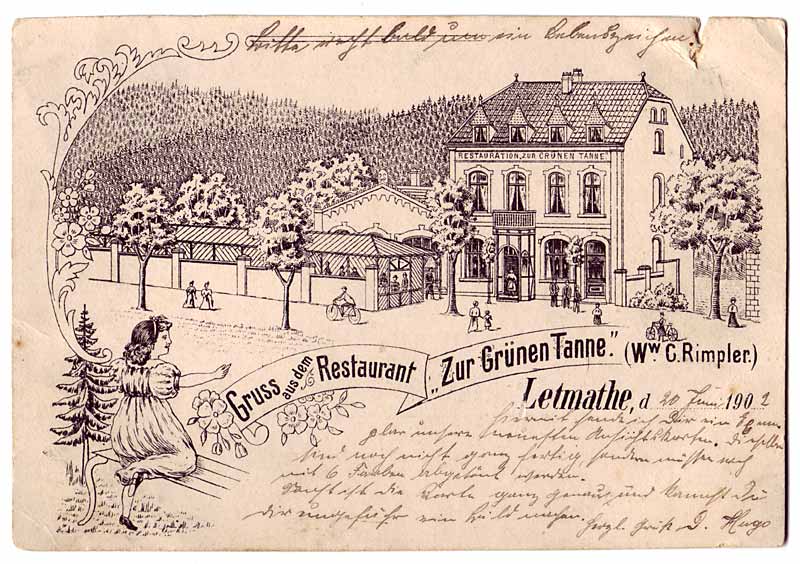 Bitte recht bald um ein Lebenszeichen.
RESTAURATION „ZUR GRÜNEN TANNE"
Gruss aus dem Restaurant „Zur Grünen Tanne." (Ww C. Rimpler.)
Letmathe, d 20 Juni 1902
Hiermit sende ich Dir ein Exem-
plar unsere neuesten Ansichtskarten. Dieselben
sind noch nicht ganz fertig, sondern müssen noch
mit 6 Farben abgetönt werden.
ist die Karte ganz genau, und kannst Du
Dir ungefähr ein Bild machen.
Herzl. Gruß D. Hugo